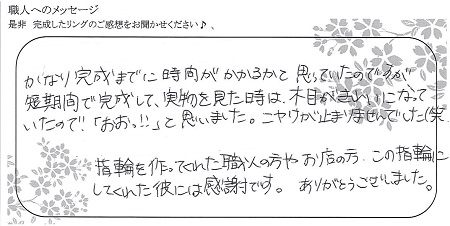 職人へのメッセージ
是非 完成したリングのご感想をお聞かせください♪
かなり完成までに時間がかかるかと思っていたのですが
短期間で完成して、実物を見た時は、木目がきれいになって
いたので!「おおっ!!」と思いました。ニヤケが止まりませんでした(笑
指輪を作ってくれた職人の方やお店の方、この指輪に
してくれた彼には感謝です。ありがとうございました。